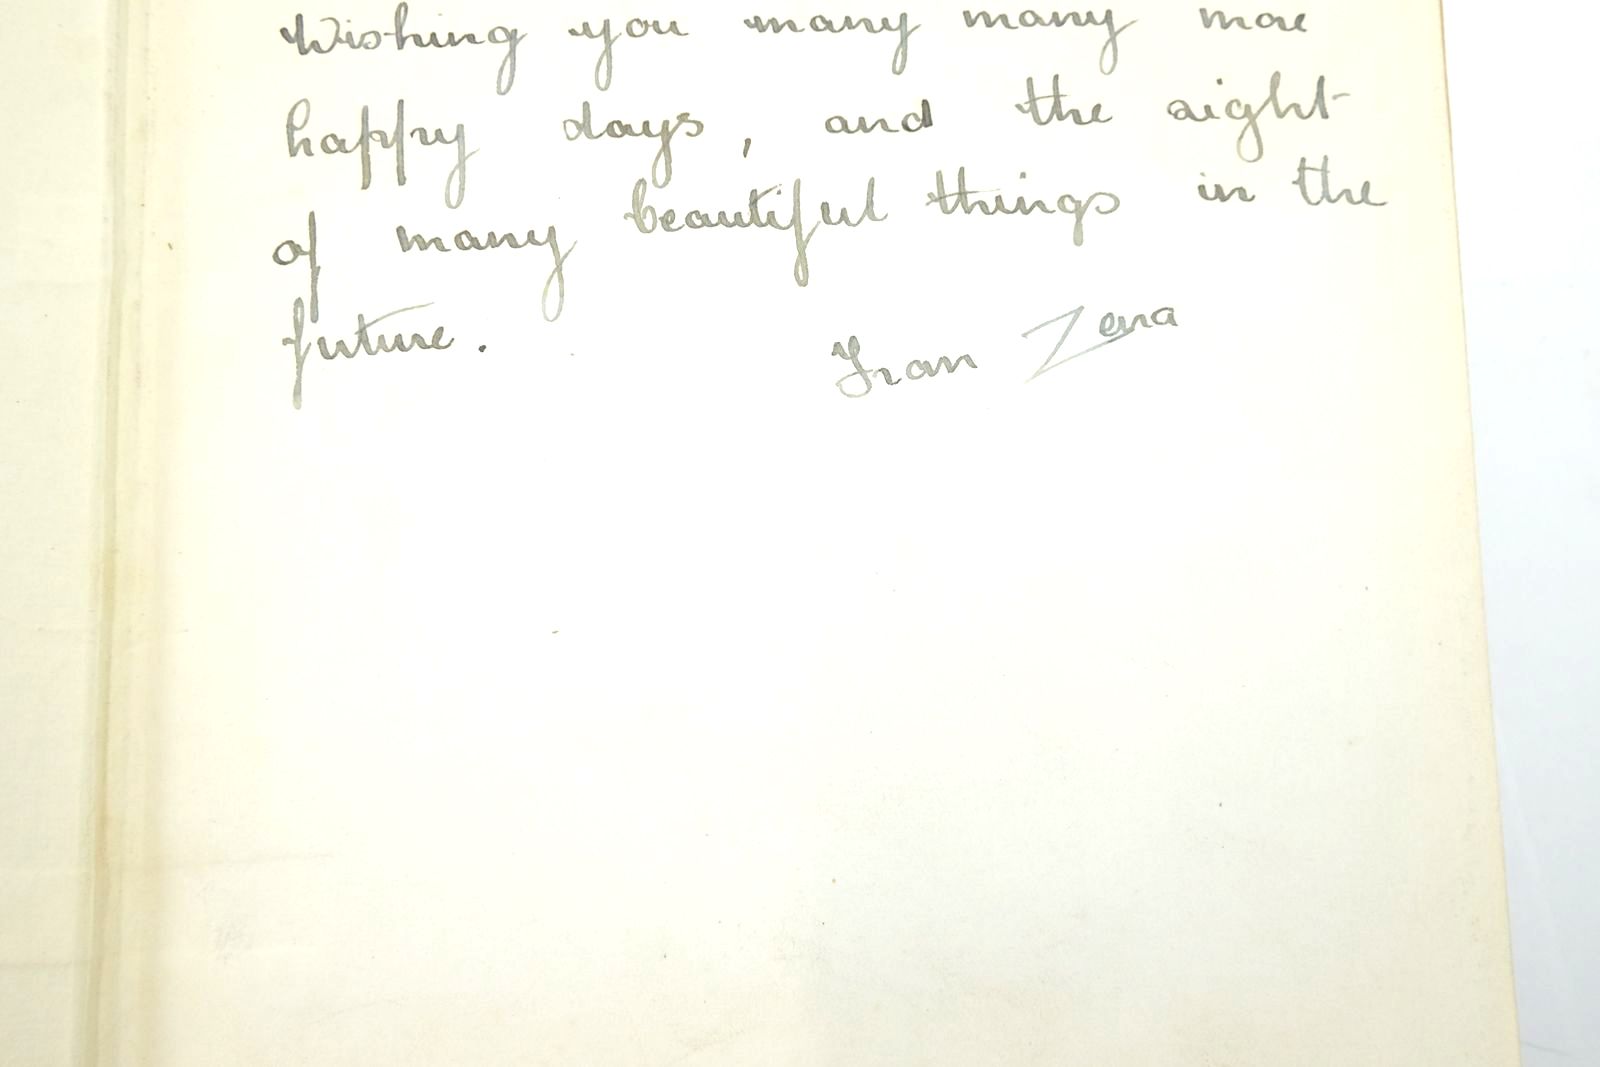 Wishing you many many more
happy days, and the sight
of many beautiful things in the
future.
From Zena